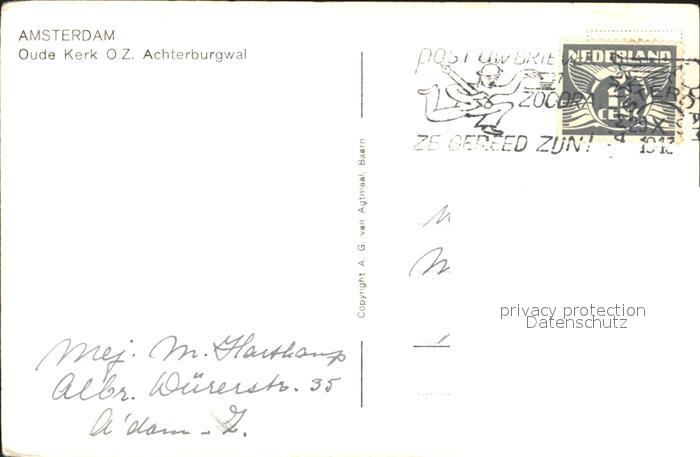 AMSTERDAM
Oude Kerk O.Z. Achterburgwal
POST UW BRIEVEN
ZODRA
ZE GEREED ZIJN!
NEDERLAND
CENT
29 X
1943
Copyright A. G. van Agtmaal, Baarn
M
privacy protection
Datenschutz
Mej. M. Hartkamp
Albr. Dürerstr. 35
A'dam - Z.